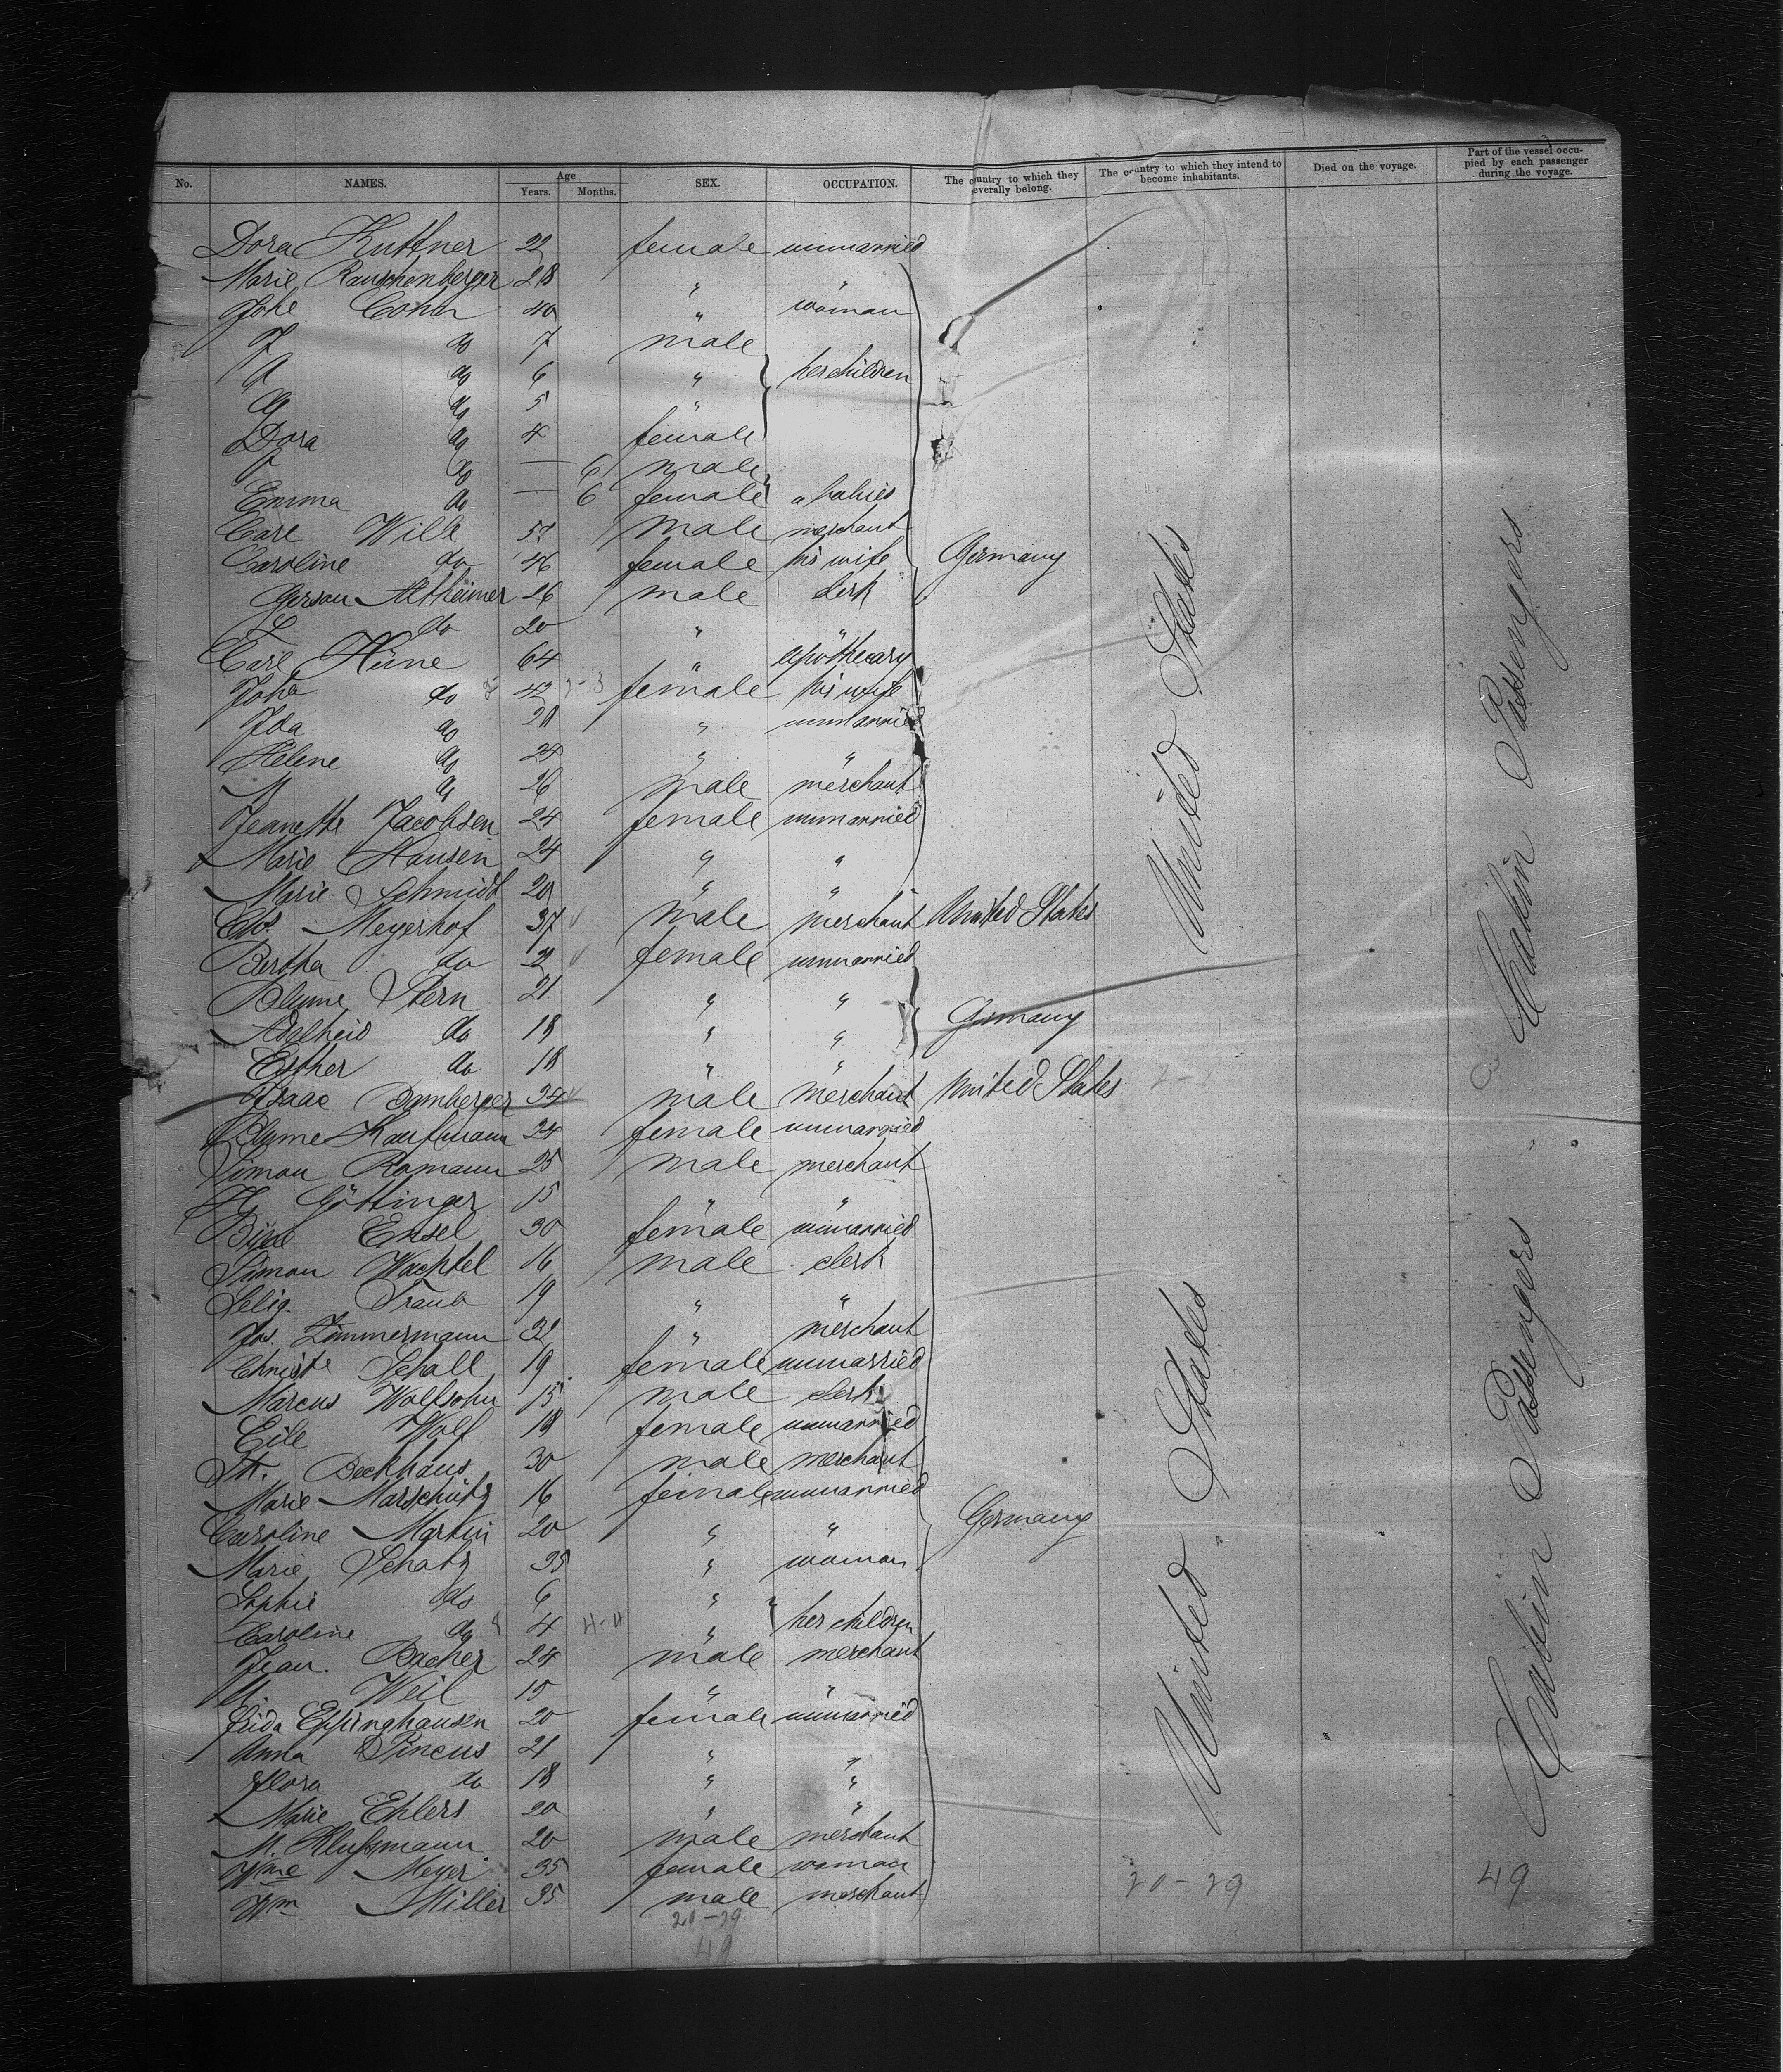 No. NAMES. Age Years. Months. SEX. OCCUPATION. The country to which they severally belong. The country to which they intend to become inhabitants. Died on the voyage. Part of the vessel occupied by each passenger during the voyage.
Dora Kuttner 22 female unmarried
Marie Rauschenberger 28 " "
Johe Cohn 40 " woman
J do 7 male
A do 6 " her children
A do 5 "
Dora do 4 female
do — 6 male
Emma do — 6 female babies
Carl Wilk 57 male merchant
Caroline do 46 female his wife Germany
Gerson Altheimer 26 male clerk
L do 20 " "
Carl Hüne 64 " apothecary
Joha do 42 female his wife
Ida do 28 " unmarried
Helene do 24 " "
M do 26 male merchant
Jeanette Jacobsen 24 female unmarried
Marie Hansen 24 " "
Marie Schmidt 20 " "
Meyerhof 37 male merchant United States
Bertha do 21 female unmarried
Blume Stern 21 " "
Adelheid do 18 " " Germany
Esther do 18 " "
Isaac Bamberger 34 male merchant United States
Blume Kaufmann 24 female unmarried
Simon Romann 25 male merchant
H. Göttinger 15 " "
Ensel 30 female unmarried
Simon Wachtel 16 male clerk
Selig. Traub 19 " "
Jos. Zimmermann 32 " merchant
Christe Schall 19 female unmarried
Marcus Wolfsohn 15 male clerk
Eile Wolf 18 female unmarried
Beckhaus 30 male merchant
Marie Marschütz 16 female unmarried
Caroline Martin 20 " " Germany
Marie Schatz 35 " woman
Sophie do 6 "
Caroline do 4 " her children
Jean. Bacher 24 male merchant
Weil 15 " "
Frida Eppinghausen 20 female unmarried
Anna Pincus 21 " "
Flora do 18 " "
Marie Ehlers 20 " "
M. Klußmann 20 male merchant
Wme Meyer 35 female woman
Wm Miller 35 male merchant
20-29
49
United States
United States
20-29
Cabin Passengers
Cabin Passengers
49